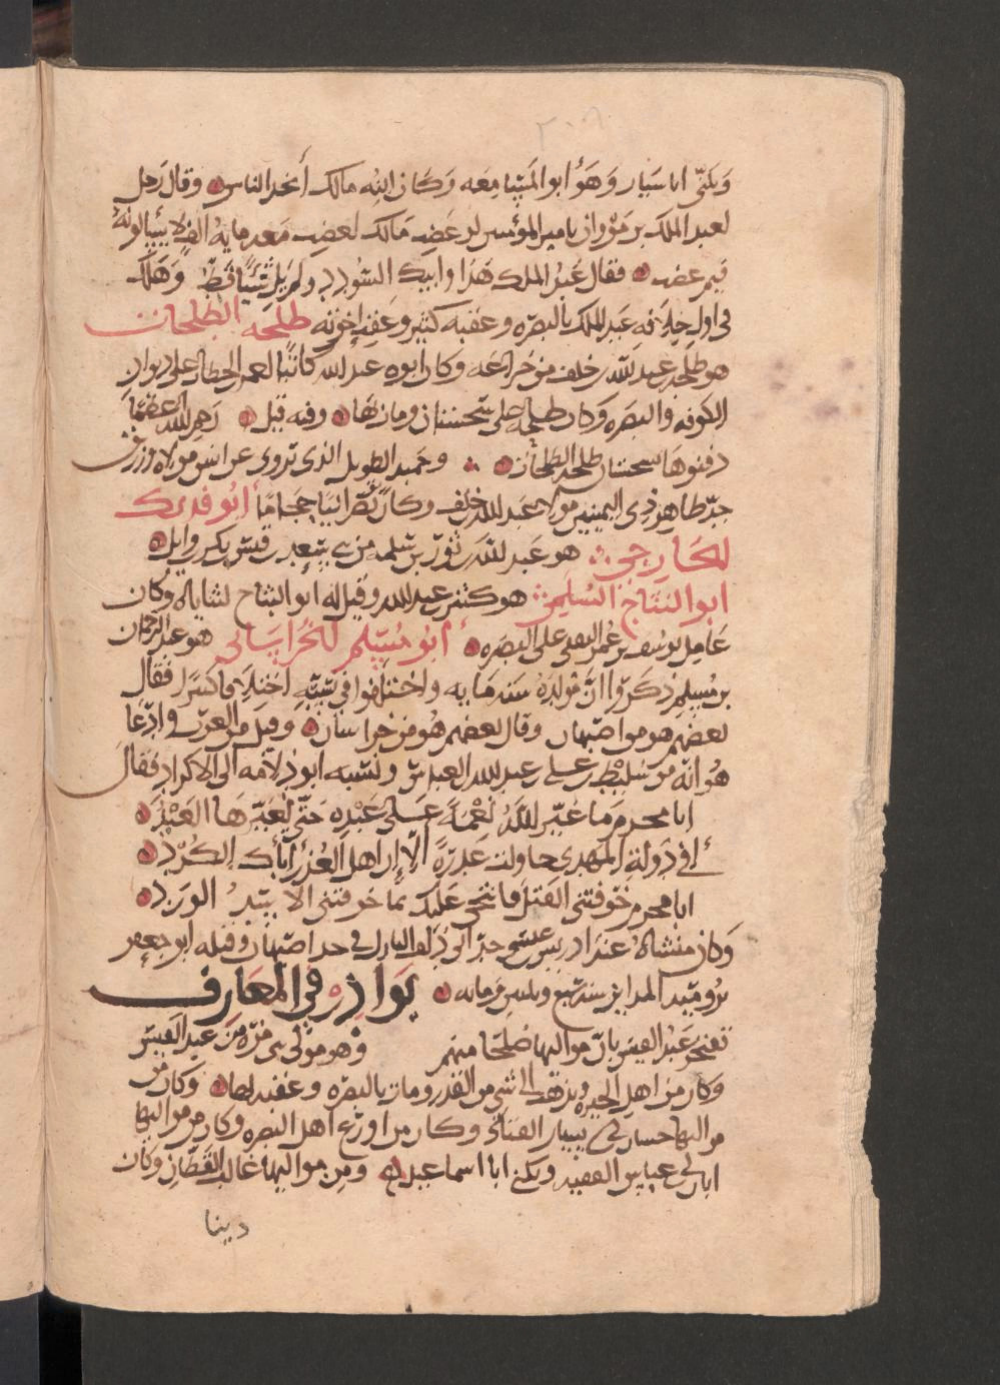 ويكنى ابا سيار وهو أبو المسامعه وكان ابنه مالك أنجد الناس وقال رجل
لعبد الملك بن مروان يا مير المؤمنين لو غضب مالك لغضب معه مايه الف لا يسالونه
فيم غضب فقال عبد الملك هذا وابيك السودد ولم يل شيئا قط وهلك
في اول خلافه عبد الملك بالبصره وعقبه كثير وعقب اخوته طلحه الطلحات
هو طلحه بن عبد الله بن خلف من خزاعه وكان ابوه عبد الله كاتبا لعمر بن الخطاب على ديوان
الكوفه والبصره وكان طلحه على سجستان ومات بها وفيه قيل رحم الله اعظما
دفنوها بسجستان طلحه الطلحات وحميد الطويل الذي تروى عن انس مولاه وزريق
جد طاهر ذي اليمينين مولى عبد الله بن خلف وكان نصرانيا حجاما أبو فديك
الخارجي هو عبد الله بن ثور بن سلمه من بني سعد بن قيس بن بكر بن وايل
ابو التياح السلمي هو عبد الله وقيل له ابو التياح لثناياه وكان
عامل يوسف بن عمر الثقفي على البصره أبو مسلم الخراساني هو عبد الرحمان
بن مسلم ذكروا ان مولده سنه مايه واختلفوا في نسبه اختلافا كثيرا فقال
بعضهم هو من اصبهان وقال بعضهم هو من خراسان وقيل من العرب وادعا
هو انه من سليط بن علي بن عبد الله بن العباس ونسبه ابو دلامه الى الاكراد فقال
ابا مجرم ما غير الله نعمة على عبده حتى يغيرها العبد
أفي دولة المهدي حاولت غدرة الا إن اهل الغدر آباك الكرد
ابا مجرم خوفتني القتل فانتحى عليك بما خوفتني الاسد الورد
وكان منشاه عند ادريس بن عيسى جد ابي دلف النازل في حد اصبهان وقتله ابو جعفر
برومية المداين سنه سبع وثلثين ومايه نوادر في المعارف
تفتخر عبد القيس بان مواليها صلحا منهم وهو مولى بني مره من عبد القيس
وكان من اهل الحيره وينزهه الى شي من القدر ومات بالبصره وعقبه بها وكان من
مواليها حسان بن ابي سنان العابد وكان من اورع اهل البصره وكان من مواليها
ابان بن ابي عياش الفقيه ويكنى ابا اسماعيل ومن مواليها غالب القطان وكان
دينا